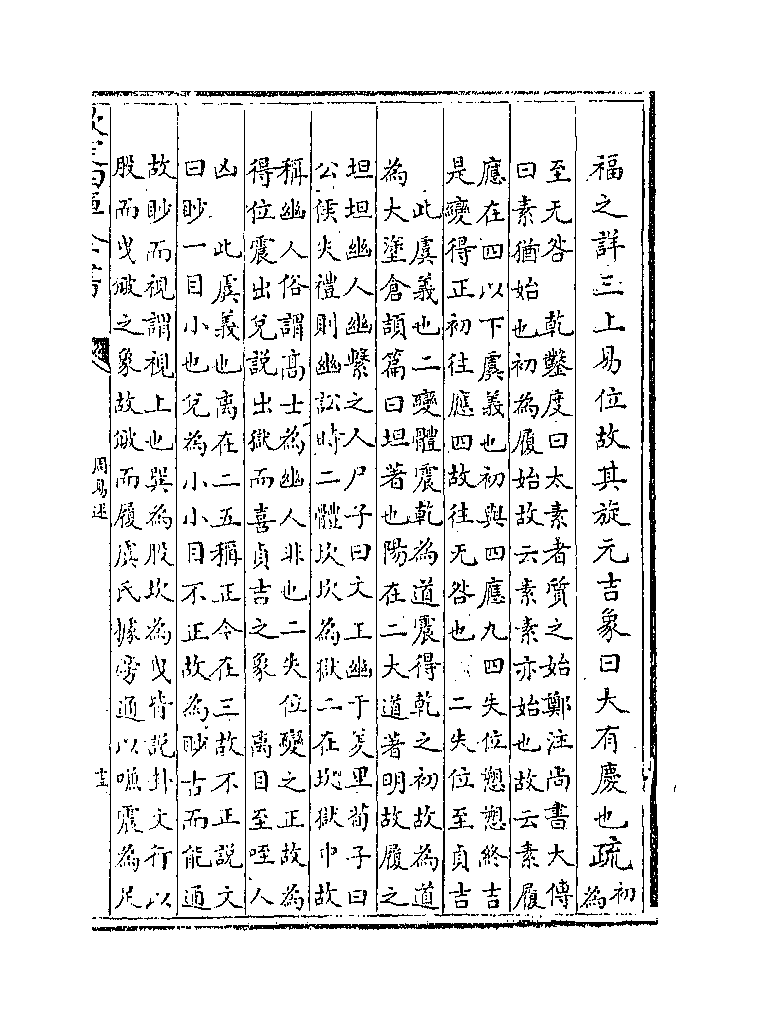 福之詳三上易位故其旋元吉象曰大有慶也疏初為
至无咎　乾鑿度曰太素者質之始鄭注尚書大傳
曰素猶始也初為履始故云素素亦始也故云素履
應在四以下虞義也初與四應九四失位愬愬終吉
是變得正初往應四故往无咎也　二失位至貞吉
　此虞義也二變體震乾為道震得乾之初故為道
為大塗倉頡篇曰坦著也陽在二大道著明故履之
坦坦幽人幽繫之人尸子曰文王幽于羑里荀子曰
公侯失禮則幽訟時二體坎坎為獄二在坎獄中故
稱幽人俗謂高士為幽人非也二失位變之正故為
得位震出兌說出獄而喜貞吉之象　離目至咥人
凶　此虞義也離在二五稱正今在三故不正說文
曰眇一目小也兌為小小目不正故為眇古而能通
故眇而視謂視上也巽為股坎為曳皆說卦文行以
股而曳跛之象故跛而履虞氏據旁通以嗛震為足
欽定四庫全書
周易述